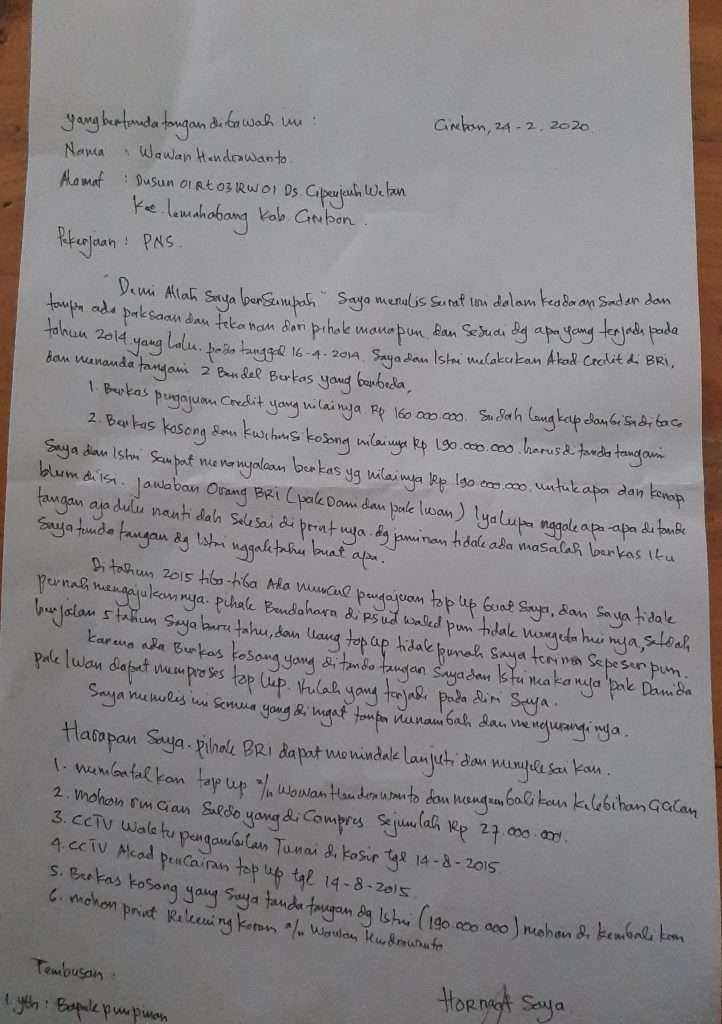 yang bertanda tangan di bawah ini : Cirebon, 24 - 2. 2020.
Nama : Wawan Hendrawanto.
Alamat : Dusun 01 Rt 03 RW 01 Ds. Cipeujeuh Wetan
Kec. Lemahabang Kab. Cirebon.
Pekerjaan : PNS.
"Demi Allah Saya bersumpah" Saya menulis surat ini dalam keadaan Sadar dan
tanpa ada paksaan dan tekanan dari pihak manapun dan Sesuai dg apa yang terjadi pada
tahun 2014 yang lalu. pada tanggal 16-4-2014. Saya dan Istri melakukan Akad Credit di BRI,
dan menanda tangani 2 Bendel Berkas yang berbeda,
1. Berkas pengajuan Credit yang nilainya Rp 160.000.000. Sudah lengkap dan bisa di baca
2. Berkas kosong dan kwitansi kosong nilainya Rp 190.000.000. harus di tanda tangani
Saya dan Istri Sempat menanyakan berkas yg nilainya Rp 190.000.000. untuk apa dan kenap
blum di isi. jawaban Orang BRI (pak Dani dan pak Iwan) Iya lupa nggak apa-apa di tanda
tangan aja dulu nanti dah Selesai di print nya. dg jaminan tidak ada masalah berkas itu
Saya tanda tangan dg Istri nggak tahu buat apa.
Di tahun 2015 tiba-tiba Ada muncul pengajuan top up buat Saya, dan Saya tidak
pernah mengajukannya. pihak Bendahara di RSUD Waled pun tidak mengetahuinya, setelah
berjalan 5 tahun Saya baru tahu, dan Uang top up tidak pernah Saya terima Sepeser pun.
karena ada Berkas kosong yang di tanda tangan Saya dan Istri makanya pak Dani da
pak Iwan dapat memproses top up. Itulah yang terjadi pada diri Saya.
Saya menulis ini semua yang di ingat tanpa menambah dan mengurangi nya.
Harapan Saya. pihak BRI dapat menindak lanjuti dan menyelesaikan.
1. membatalkan top up a/n Wawan Hendrawanto dan mengembalikan kelebihan Cicilan
2. mohon rincian Saldo yang di Compres Sejumlah Rp 27.000.000.
3. CCTV Waktu pengambilan Tunai di kasir tgl 14-8-2015
4. CCTV Akad pencairan top up tgl 14-8-2015
5. Berkas kosong yang Saya tanda tangan dg Istri (190.000.000) mohon di kembali kan
6. mohon print Rekening Koran a/n Wawan Hendrawanto
Tembusan :
1. yth : Bapak pimpinan
Hormat Saya